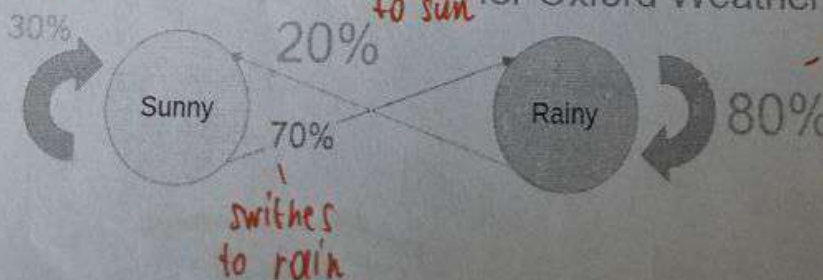 to sun for Oxford Weather
30%
20%
Sunny
Rainy
80%
70%
swithes
to rain